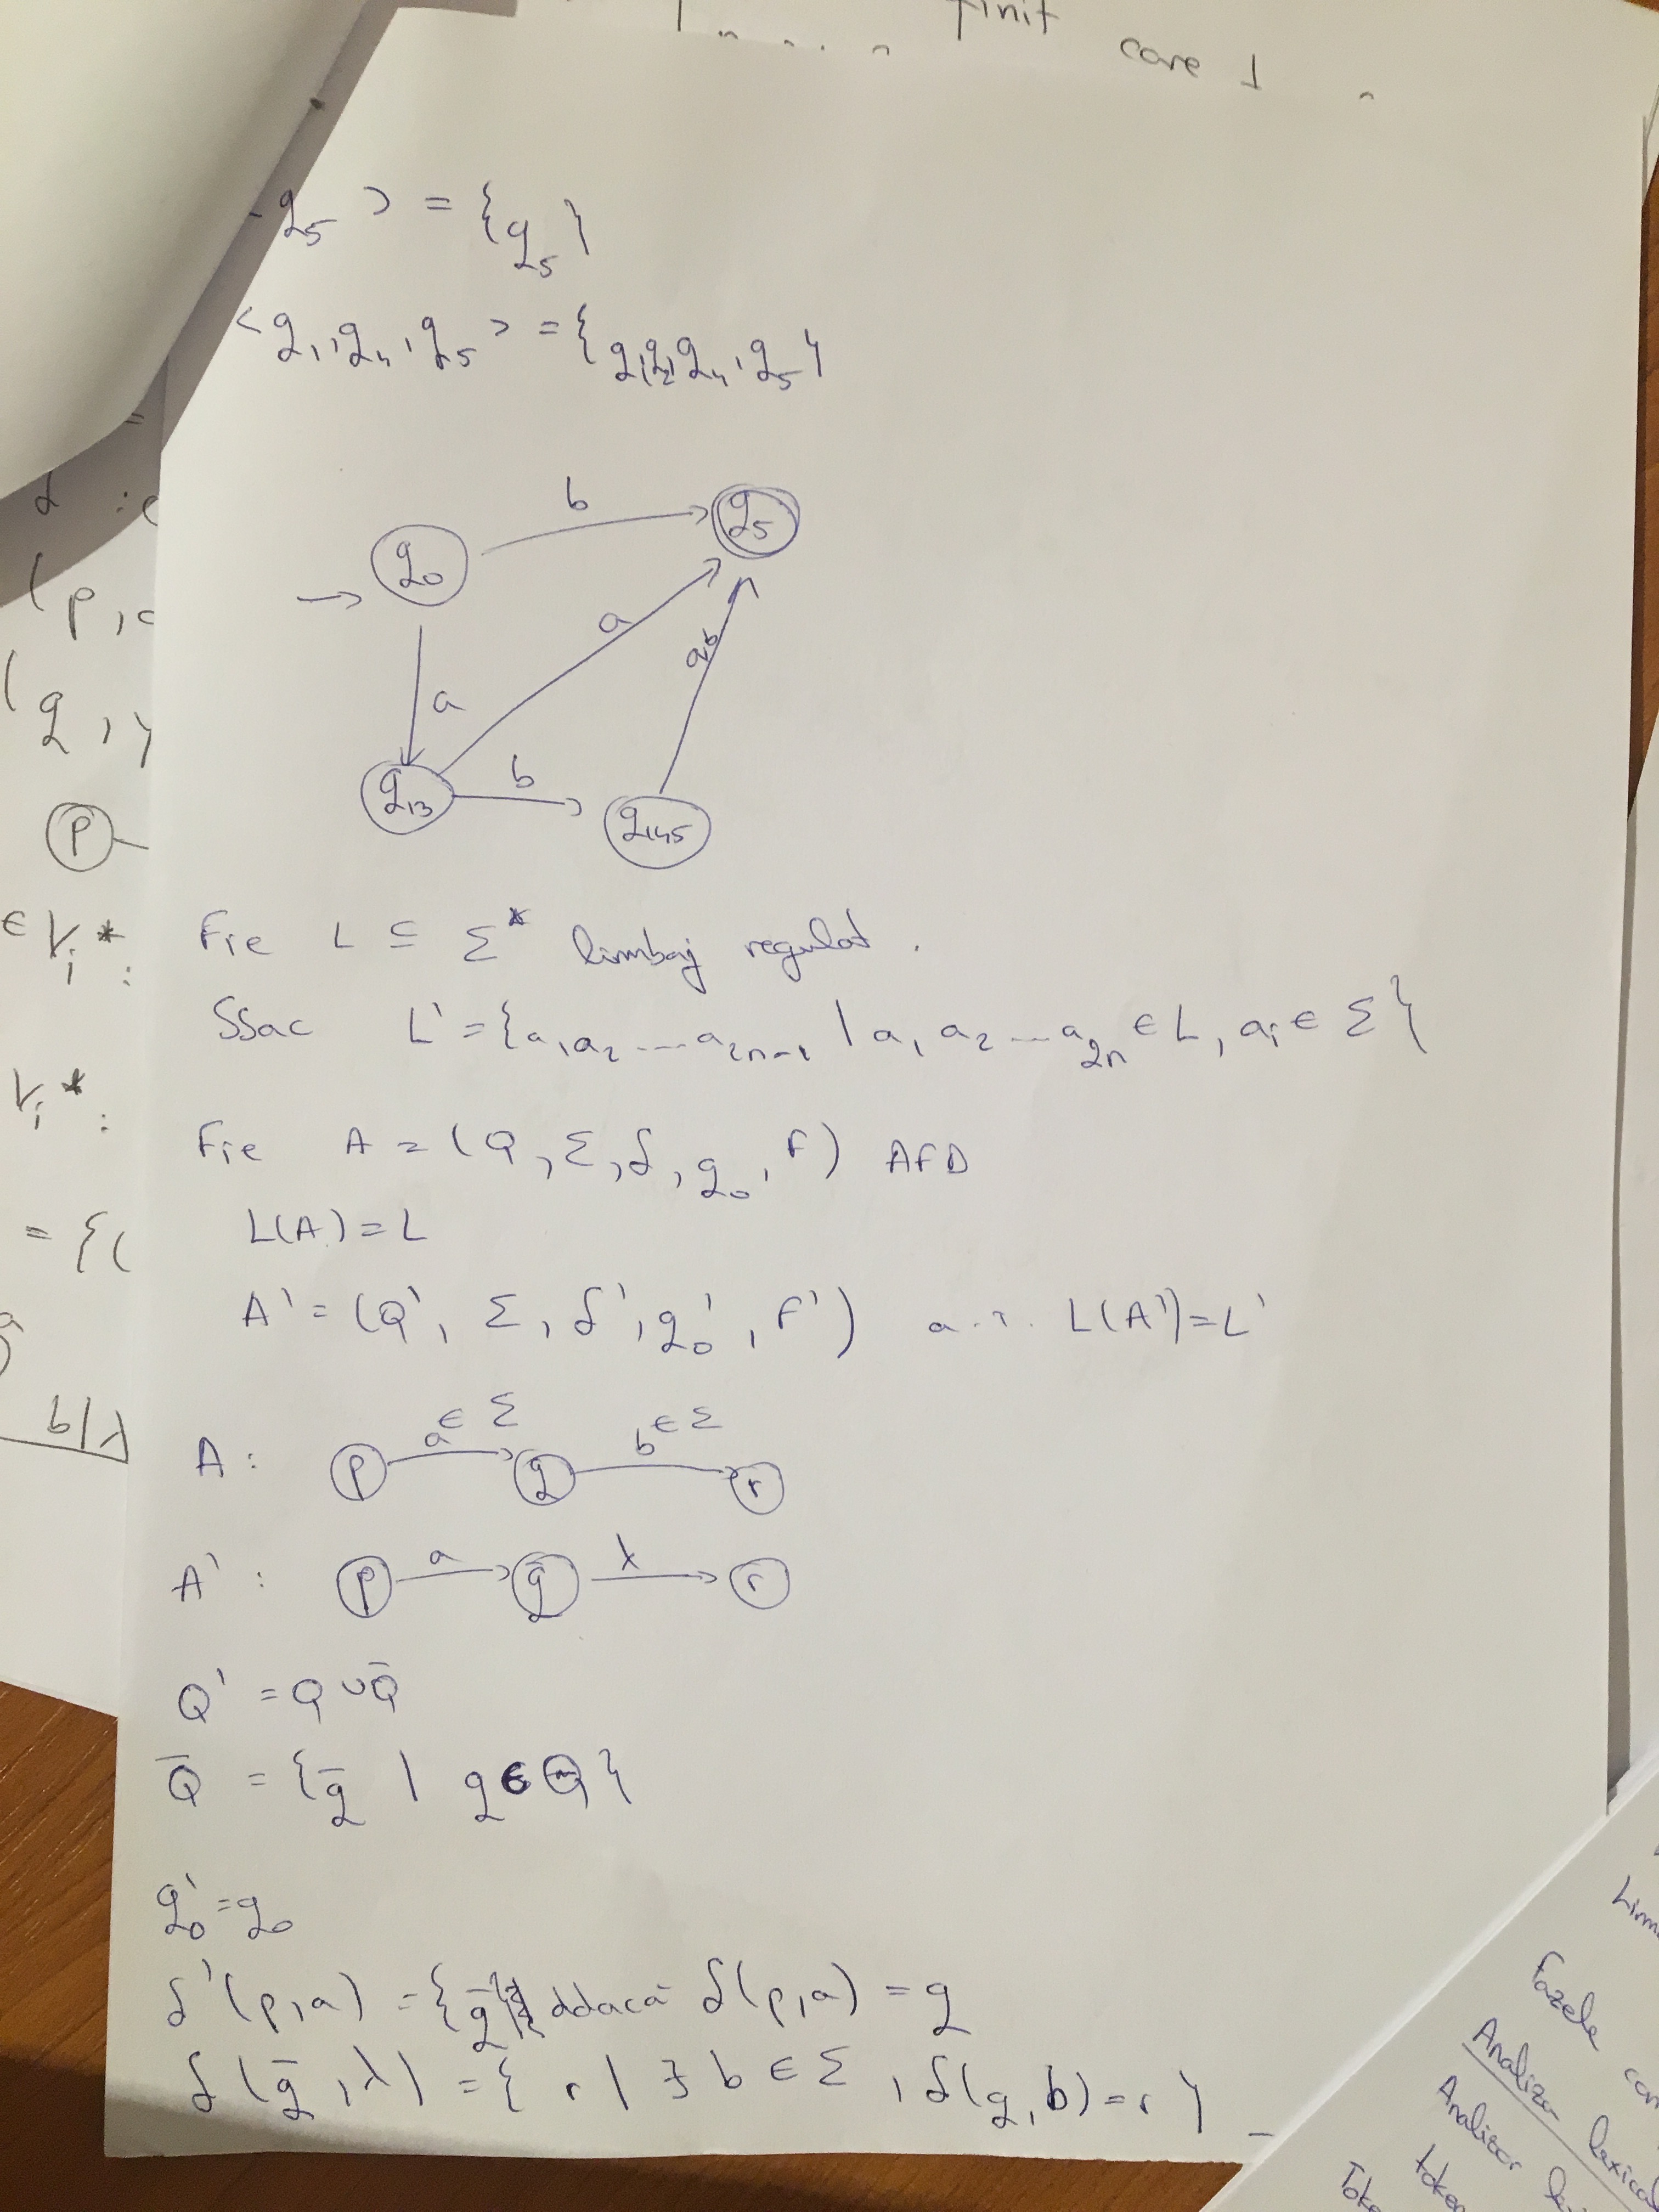 finit
care
q5 > = {q5}
<q1, q4, q5> = {q1, q2, q4, q5}
b
q0
q5
a
a
a,b
q13
b
q145
Fie L ⊆ Σ* limbaj regulat.
SSac L' = {a1a2 ... a2n-1 | a1 a2 ... a2n ∈ L, ai ∈ Σ}
Fie A = (Q, Σ, δ, q0, F) AFD
L(A) = L
A' = (Q', Σ, δ', q0', F') a.î. L(A') = L'
A: p a ∈ Σ q b ∈ Σ r
A': p a q̄ λ r
Q' = Q ∪ Q̄
Q̄ = {q̄ | q ∈ Q}
q0' = q0
δ'(p,a) = {q̄} ddacă δ(p,a) = q
δ(q̄, λ) = { r | ∃ b ∈ Σ, δ(q,b) = r }
(p,
(q,
P
∈ Vi*:
Vi*:
= {(
b/λ
Fazele
Analiza lexical
Analizor
token